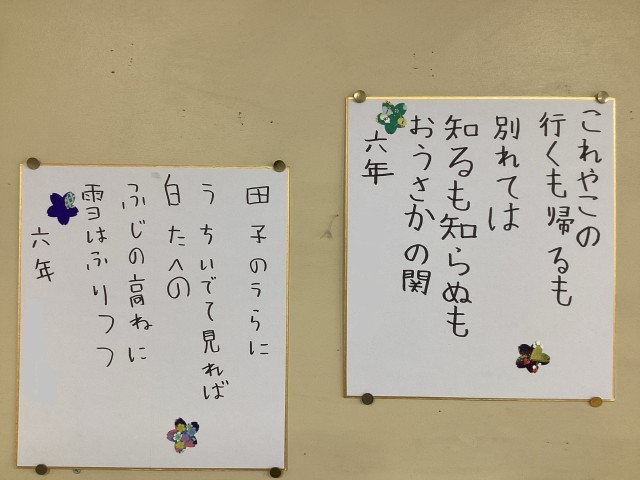 これやこの
行くも帰るも
別れては
知るも知らぬも
おうさかの関
六年
田子のうらに
うちいでて見れば
白たへの
ふじの高ねに
雪はふりつつ
六年